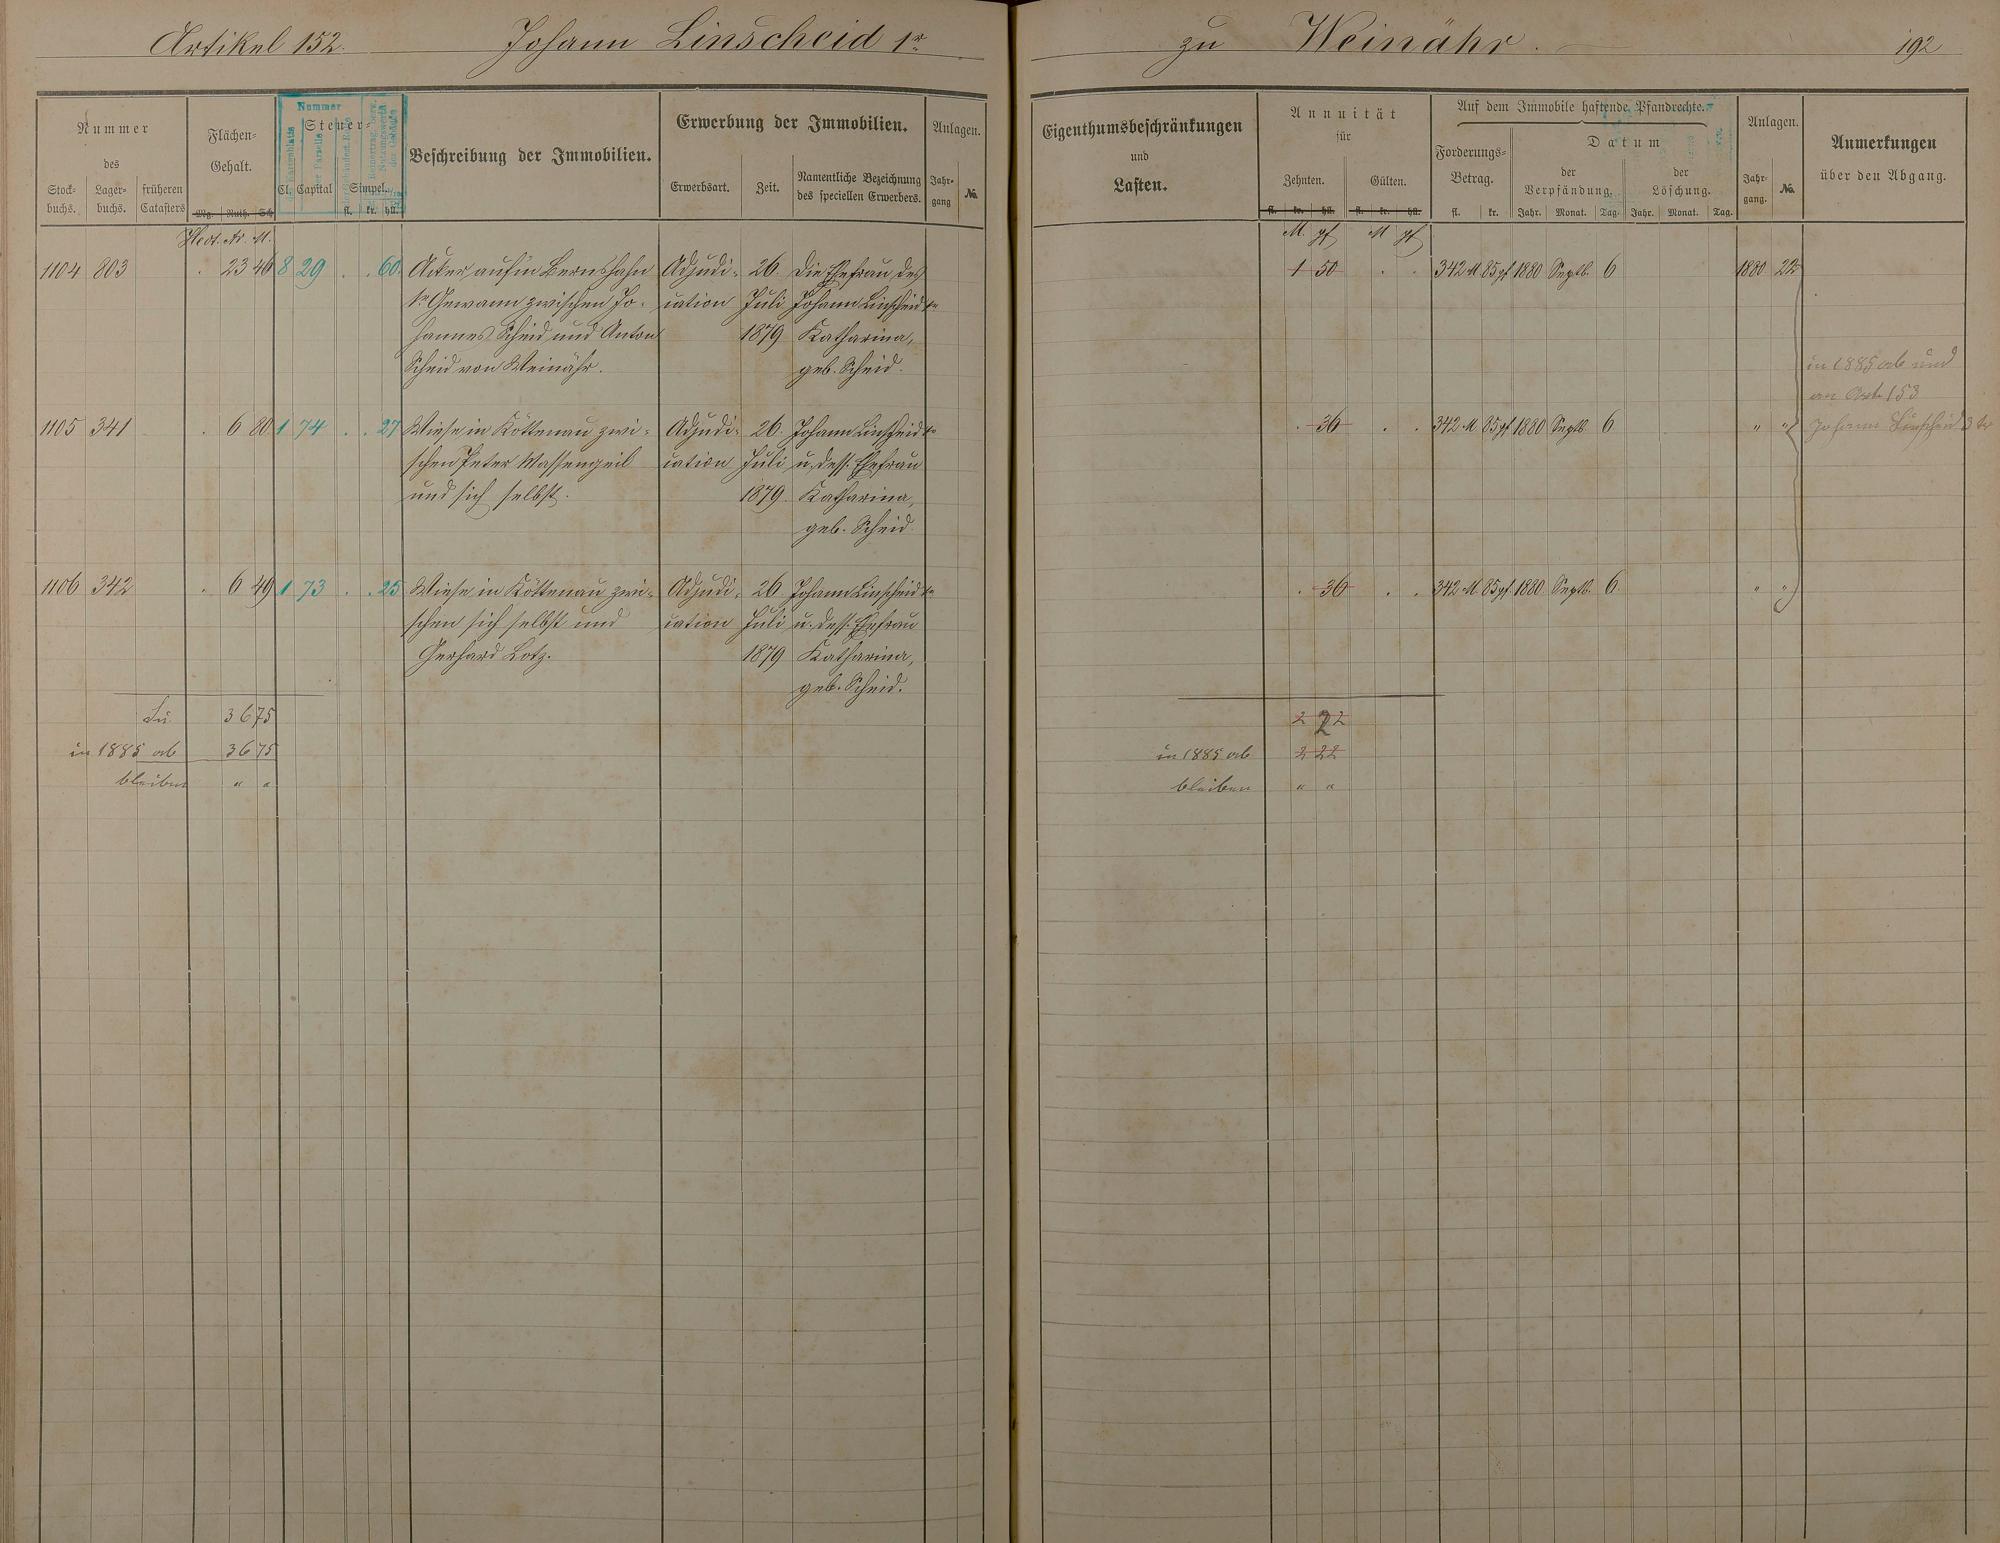 Artikel 152. Johann Linscheid 1r
zu Weinähr. 192
Nummer
des
Stock-
buchs.
Lager-
buchs.
früheren
Catasters
Flächen-
Gehalt.
Mg. Ruth. Sch
Nummer
Steuer-
Cl. Capital Simpel.
fl. kr. hll.
Beschreibung der Immobilien.
Erwerbung der Immobilien.
Erwerbsart. Zeit.
Namentliche Bezeichnung
des speciellen Erwerbers.
Anlagen.
Jahr-
gang
No.
Eigenthumsbeschränkungen
und
Lasten.
Annuität
für
Zehnten. Gülten.
fl. kr. hll. fl. kr. hll.
Auf dem Immobile haftende Pfandrechte.
Forderungs-
Betrag.
fl. kr.
Datum
der
Verpfändung.
Jahr. Monat. Tag.
der
Löschung.
Jahr. Monat. Tag.
Anlagen.
Jahr-
gang.
No.
Anmerkungen
über den Abgang.
Hect. Ar. M.
M. pf M pf
1104 803 . 23 46 8 29 . . 60
Acker aufin Bernshahn
1r Gewann zwischen Jo-
hannes Scheid und Anton
Scheid von Weinähr.
Adjudi-
cation
26.
Juli
1879
Die Ehefrau des
Johann Linscheid 1r
Katharina,
geb. Scheid.
1 50 . . 342 M 85 pf 1880 Septb. 6 1880 22
in 1885 ab und
an Art. 153
Johann Linscheid 3 tr
1105 341 . 6 80 1 74 . . 27
Wiese in Köttenau zwi-
schen Peter Massengeil
und sich selbst.
Adjudi-
cation
26.
Juli
1879.
Johann Linscheid 1r
u. dess. Ehefrau
Katharina,
geb. Scheid.
. 36 . . 342 M 85 pf 1880 Septb. 6 " "
1106 342 . 6 49 1 73 . . 25
Wiese in Köttenau zwi-
schen sich selbst und
Gerhard Lotz.
Adjudi-
cation
26.
Juli
1879
Johann Linscheid 1r
u. dess. Ehefrau
Katharina,
geb. Scheid.
. 36 . . 342 M. 85 pf. 1880 Septb. 6. " "
Su. 36 75
in 1885 ab 36 75
bleiben " "
2 22
in 1885 ab 2 22
bleiben " "